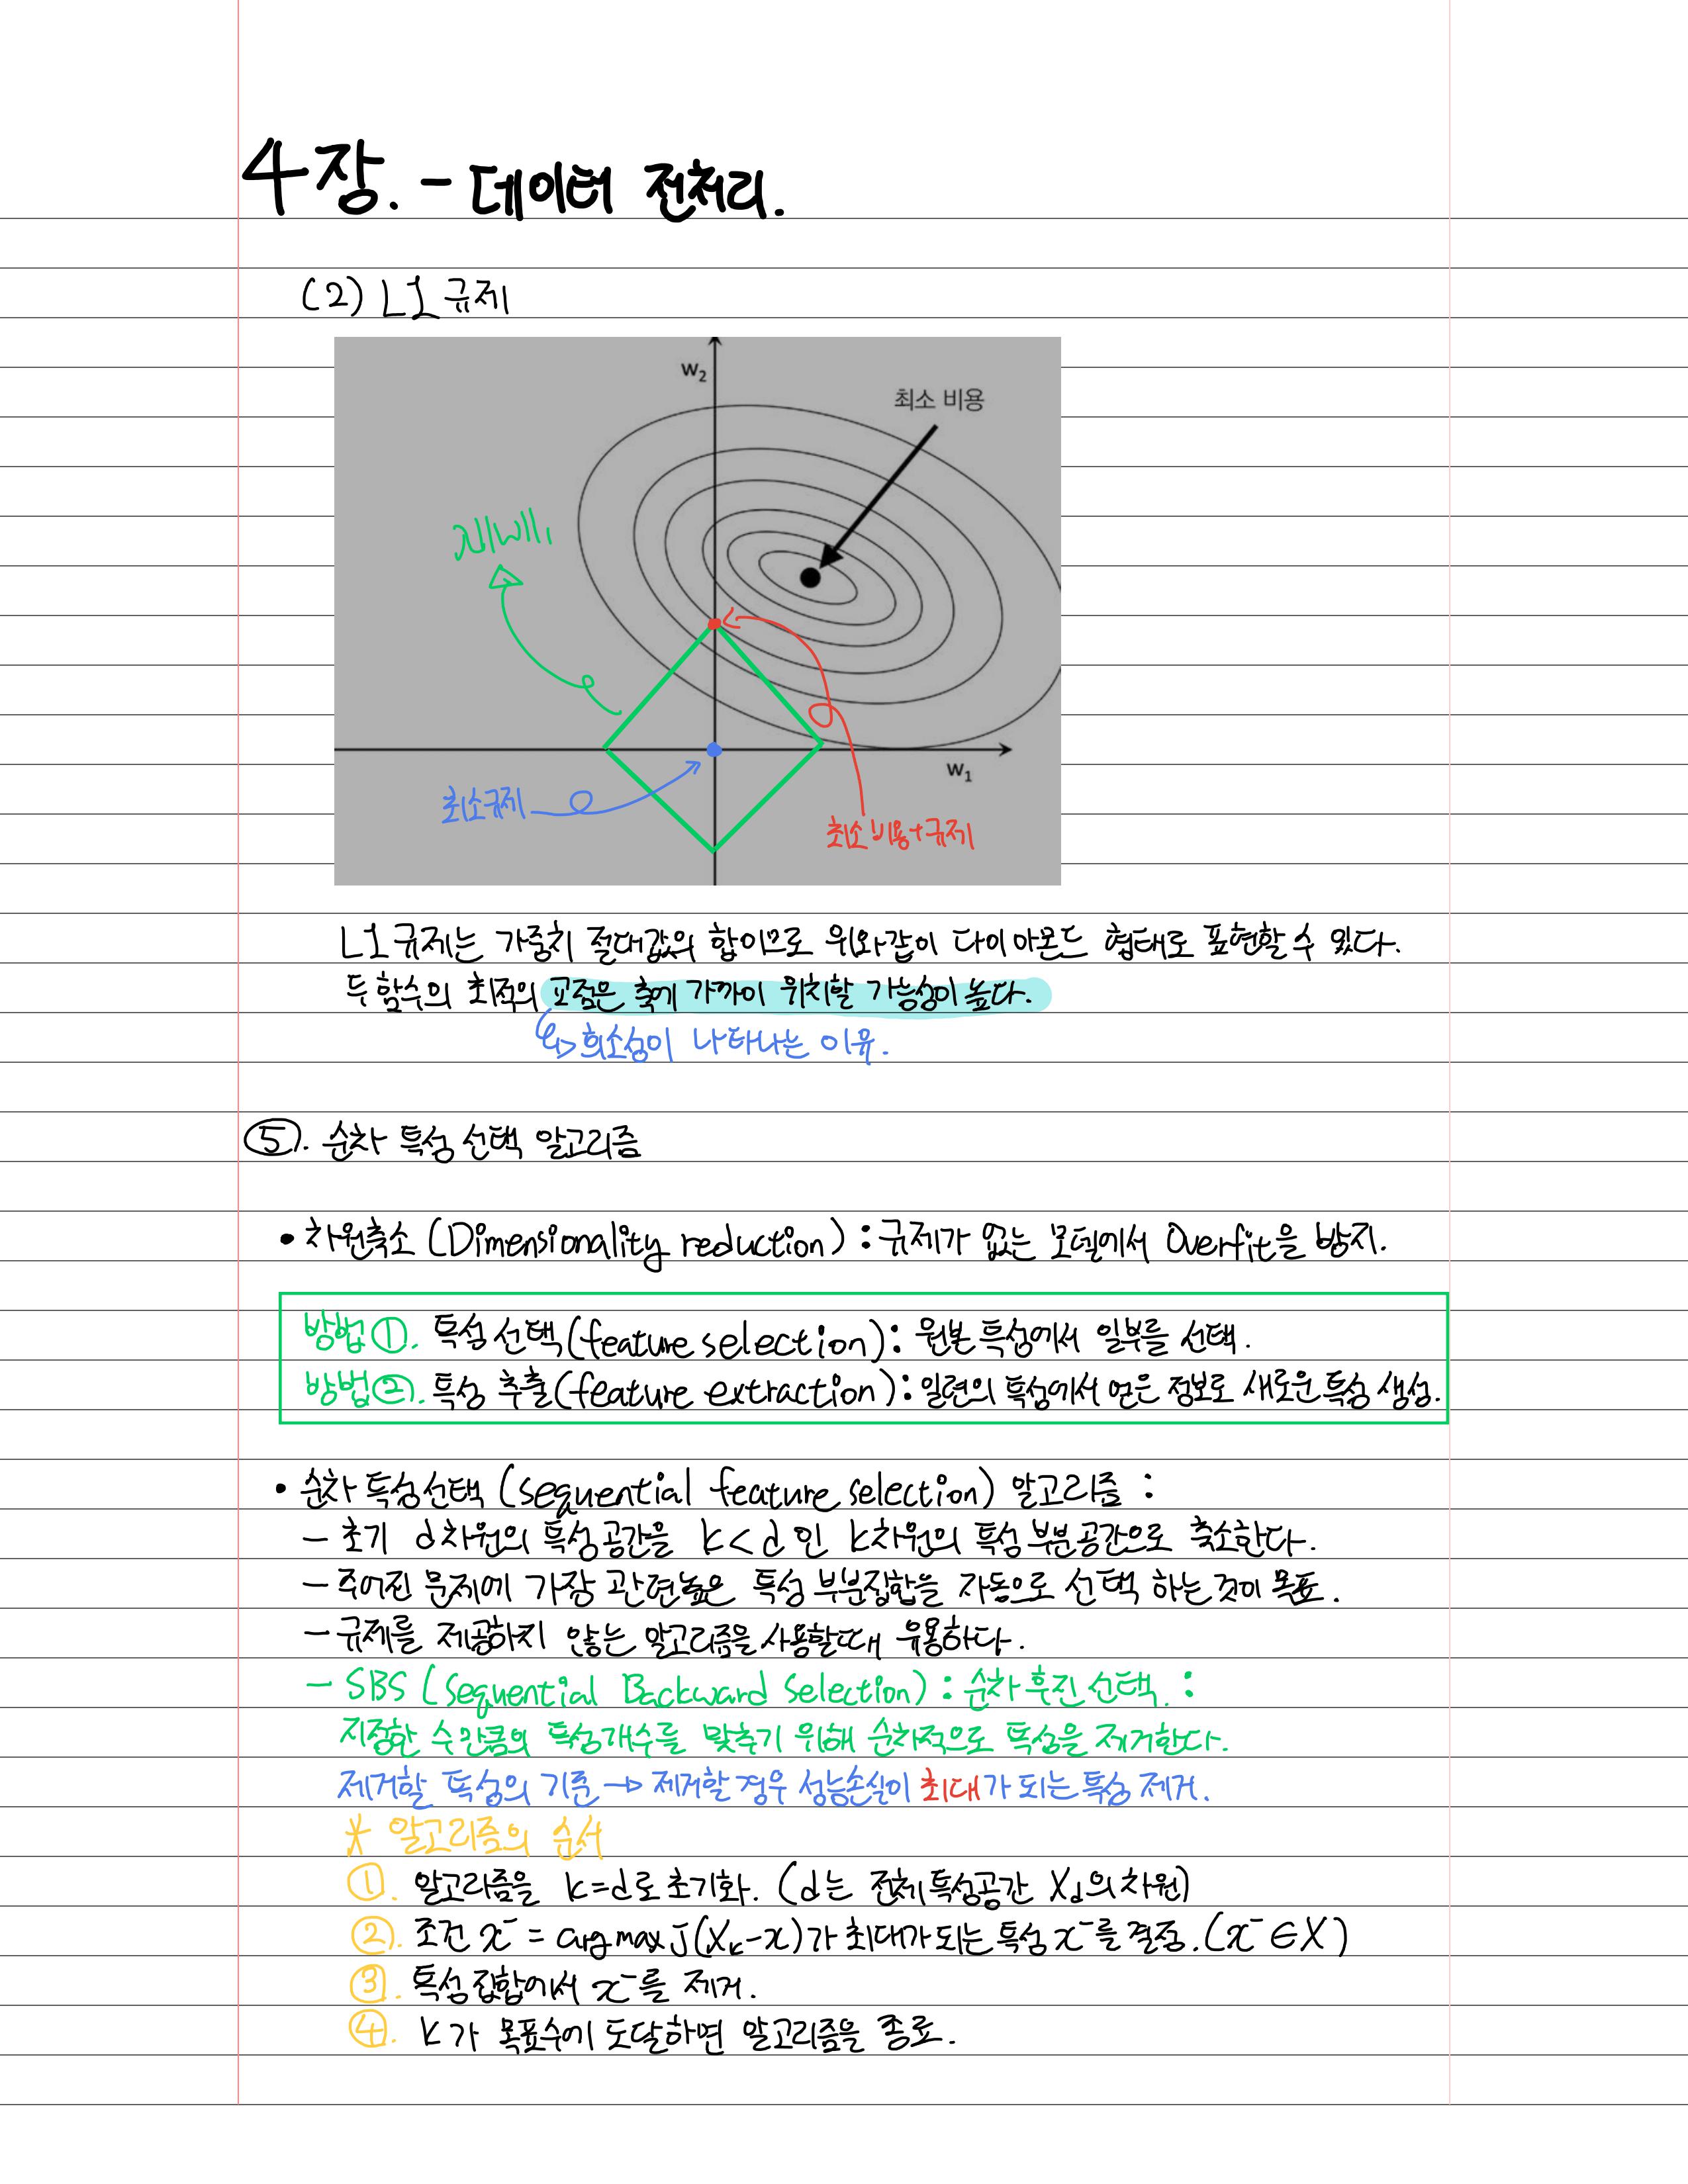 4장. - 데이터 전처리.
(2) L1 규제
w₂
최소 비용
λ||w||₁
w₁
최소규제
최소비용+규제
L1 규제는 가중치 절대값의 합이므로 위와같이 다이아몬드 형태로 표현할 수 있다.
두 함수의 최적의 교점은 축에 가까이 위치할 가능성이 높다.
↳> 희소성이 나타나는 이유.
⑤. 순차 특성 선택 알고리즘
• 차원축소 (Dimensionality reduction) : 규제가 없는 모델에서 Overfit을 방지.
방법①. 특성 선택(feature selection) : 원본 특성에서 일부를 선택.
방법②. 특성 추출(feature extraction) : 일련의 특성에서 얻은 정보로 새로운 특성 생성.
• 순차 특성선택 (sequential feature selection) 알고리즘 :
- 초기 d차원의 특성공간을 k<d인 k차원의 특성 부분공간으로 축소한다.
- 주어진 문제에 가장 관련높은 특성 부분집합을 자동으로 선택 하는 것이 목표.
- 규제를 제공하지 않는 알고리즘을 사용할때 유용하다.
- SBS (Sequential Backward Selection) : 순차 후진 선택. :
지정한 수만큼의 특성개수를 맞추기 위해 순차적으로 특성을 제거한다.
제거할 특성의 기준 → 제거할 경우 성능손실이 최대가 되는 특성 제거.
* 알고리즘의 순서
①. 알고리즘을 k=d로 초기화. (d는 전체특성공간 X_d의 차원)
②. 조건 x⁻ = arg max J(X_k-x)가 최대가 되는 특성 x⁻를 결정. (x⁻ ∈ X)
③. 특성 집합에서 x⁻를 제거.
④. k가 목표수에 도달하면 알고리즘을 종료.